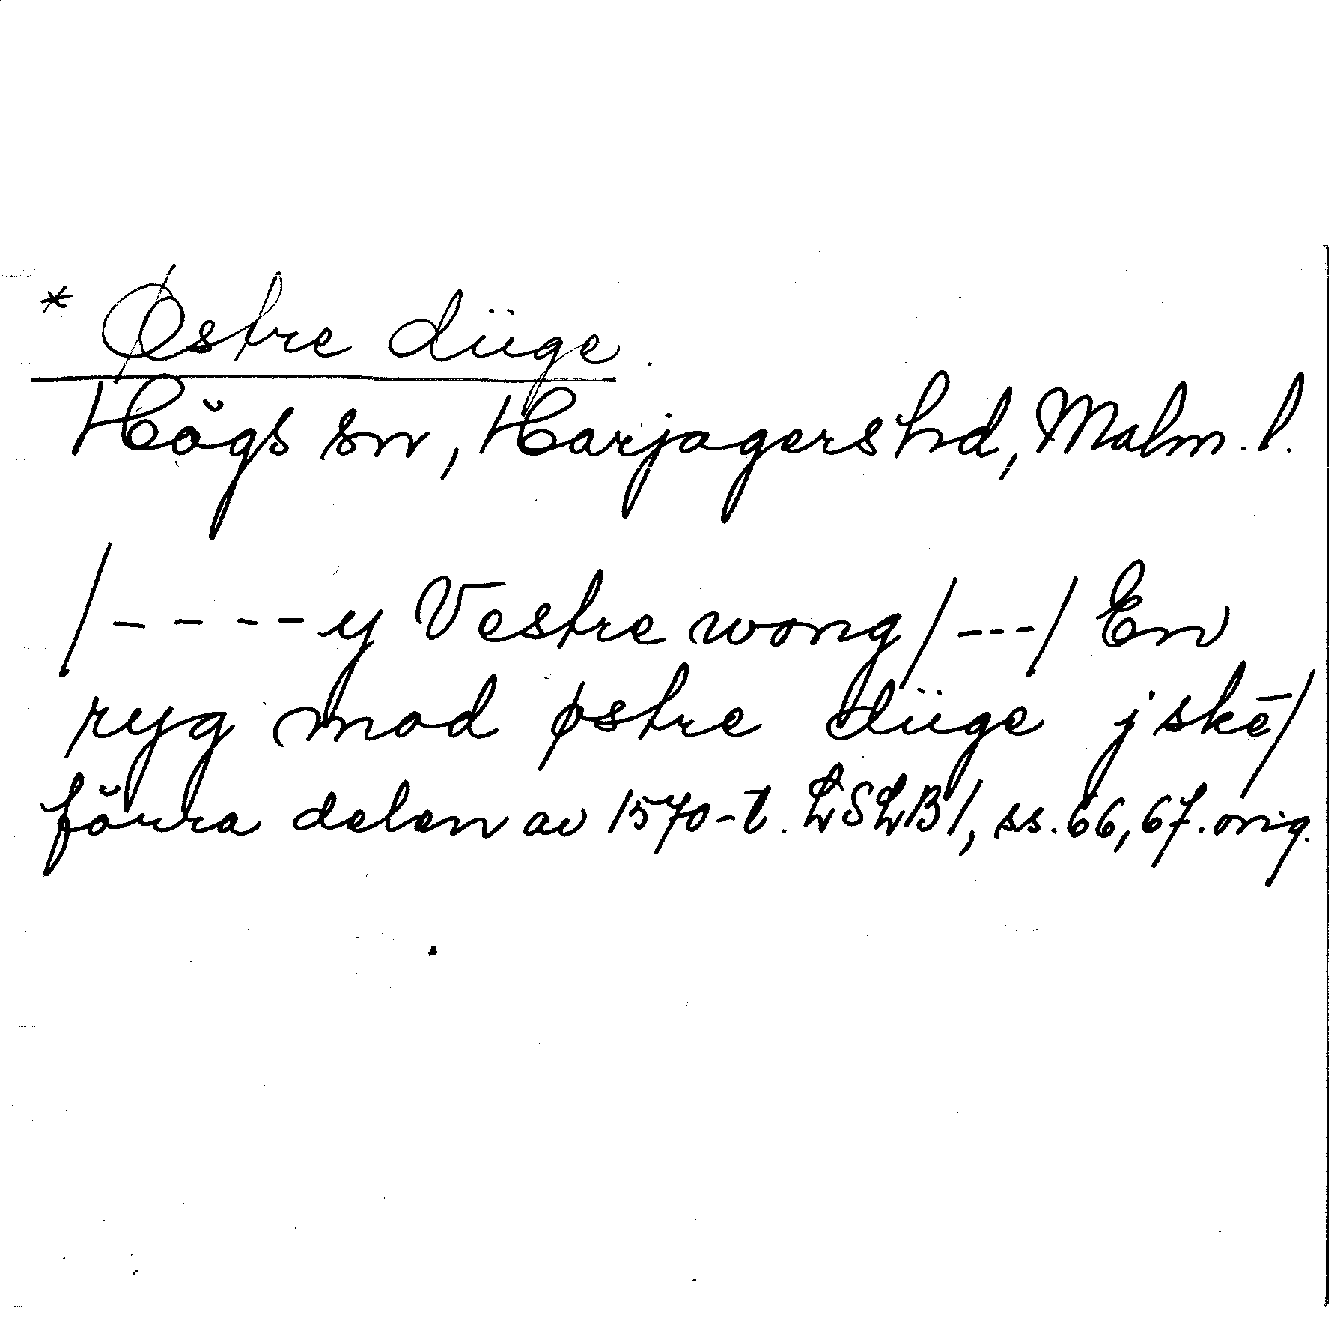 * Østre düge.
Högs sn, Harjagers hd, Malm. l.
/----y Vestre wong/---/ En
ryg mod østre düge j skē/
förra delen av 1570-t. LSLB1, ss. 66, 67. orig.